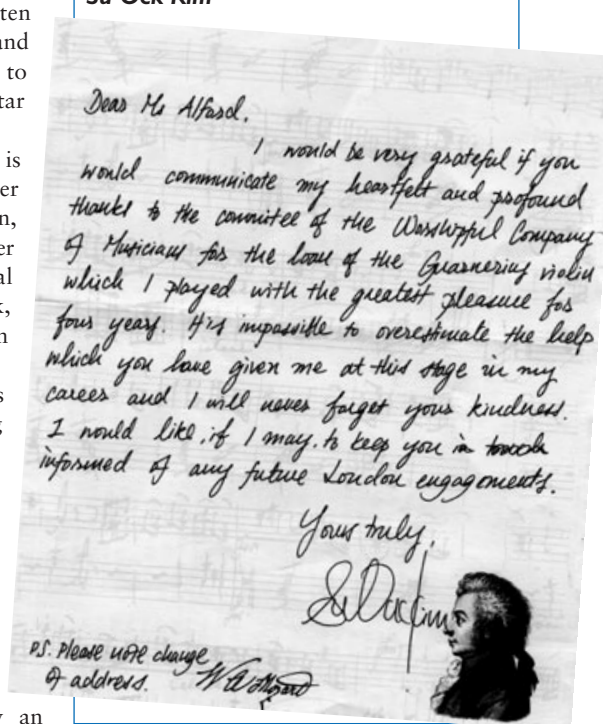 Su-Ock Kim
ten
and
to
tar
is
er
n,
er
al
k,
n
s
g
an
Dear Ms Alfasd,
I would be very grateful if you
would communicate my heartfelt and profound
thanks to the commitee of the Worshipful Company
of Musicians for the loan of the Guarnerius violin
which I played with the greatest pleasure for
four years. It is impossible to overestimate the help
which you have given me at this stage in my
career and I will never forget your kindness.
I would like, if I may, to keep you in touch
informed of any future London engagements.
Yours truly,
Su Ock Kim
P.S. Please note change
of address.
W A Mozart